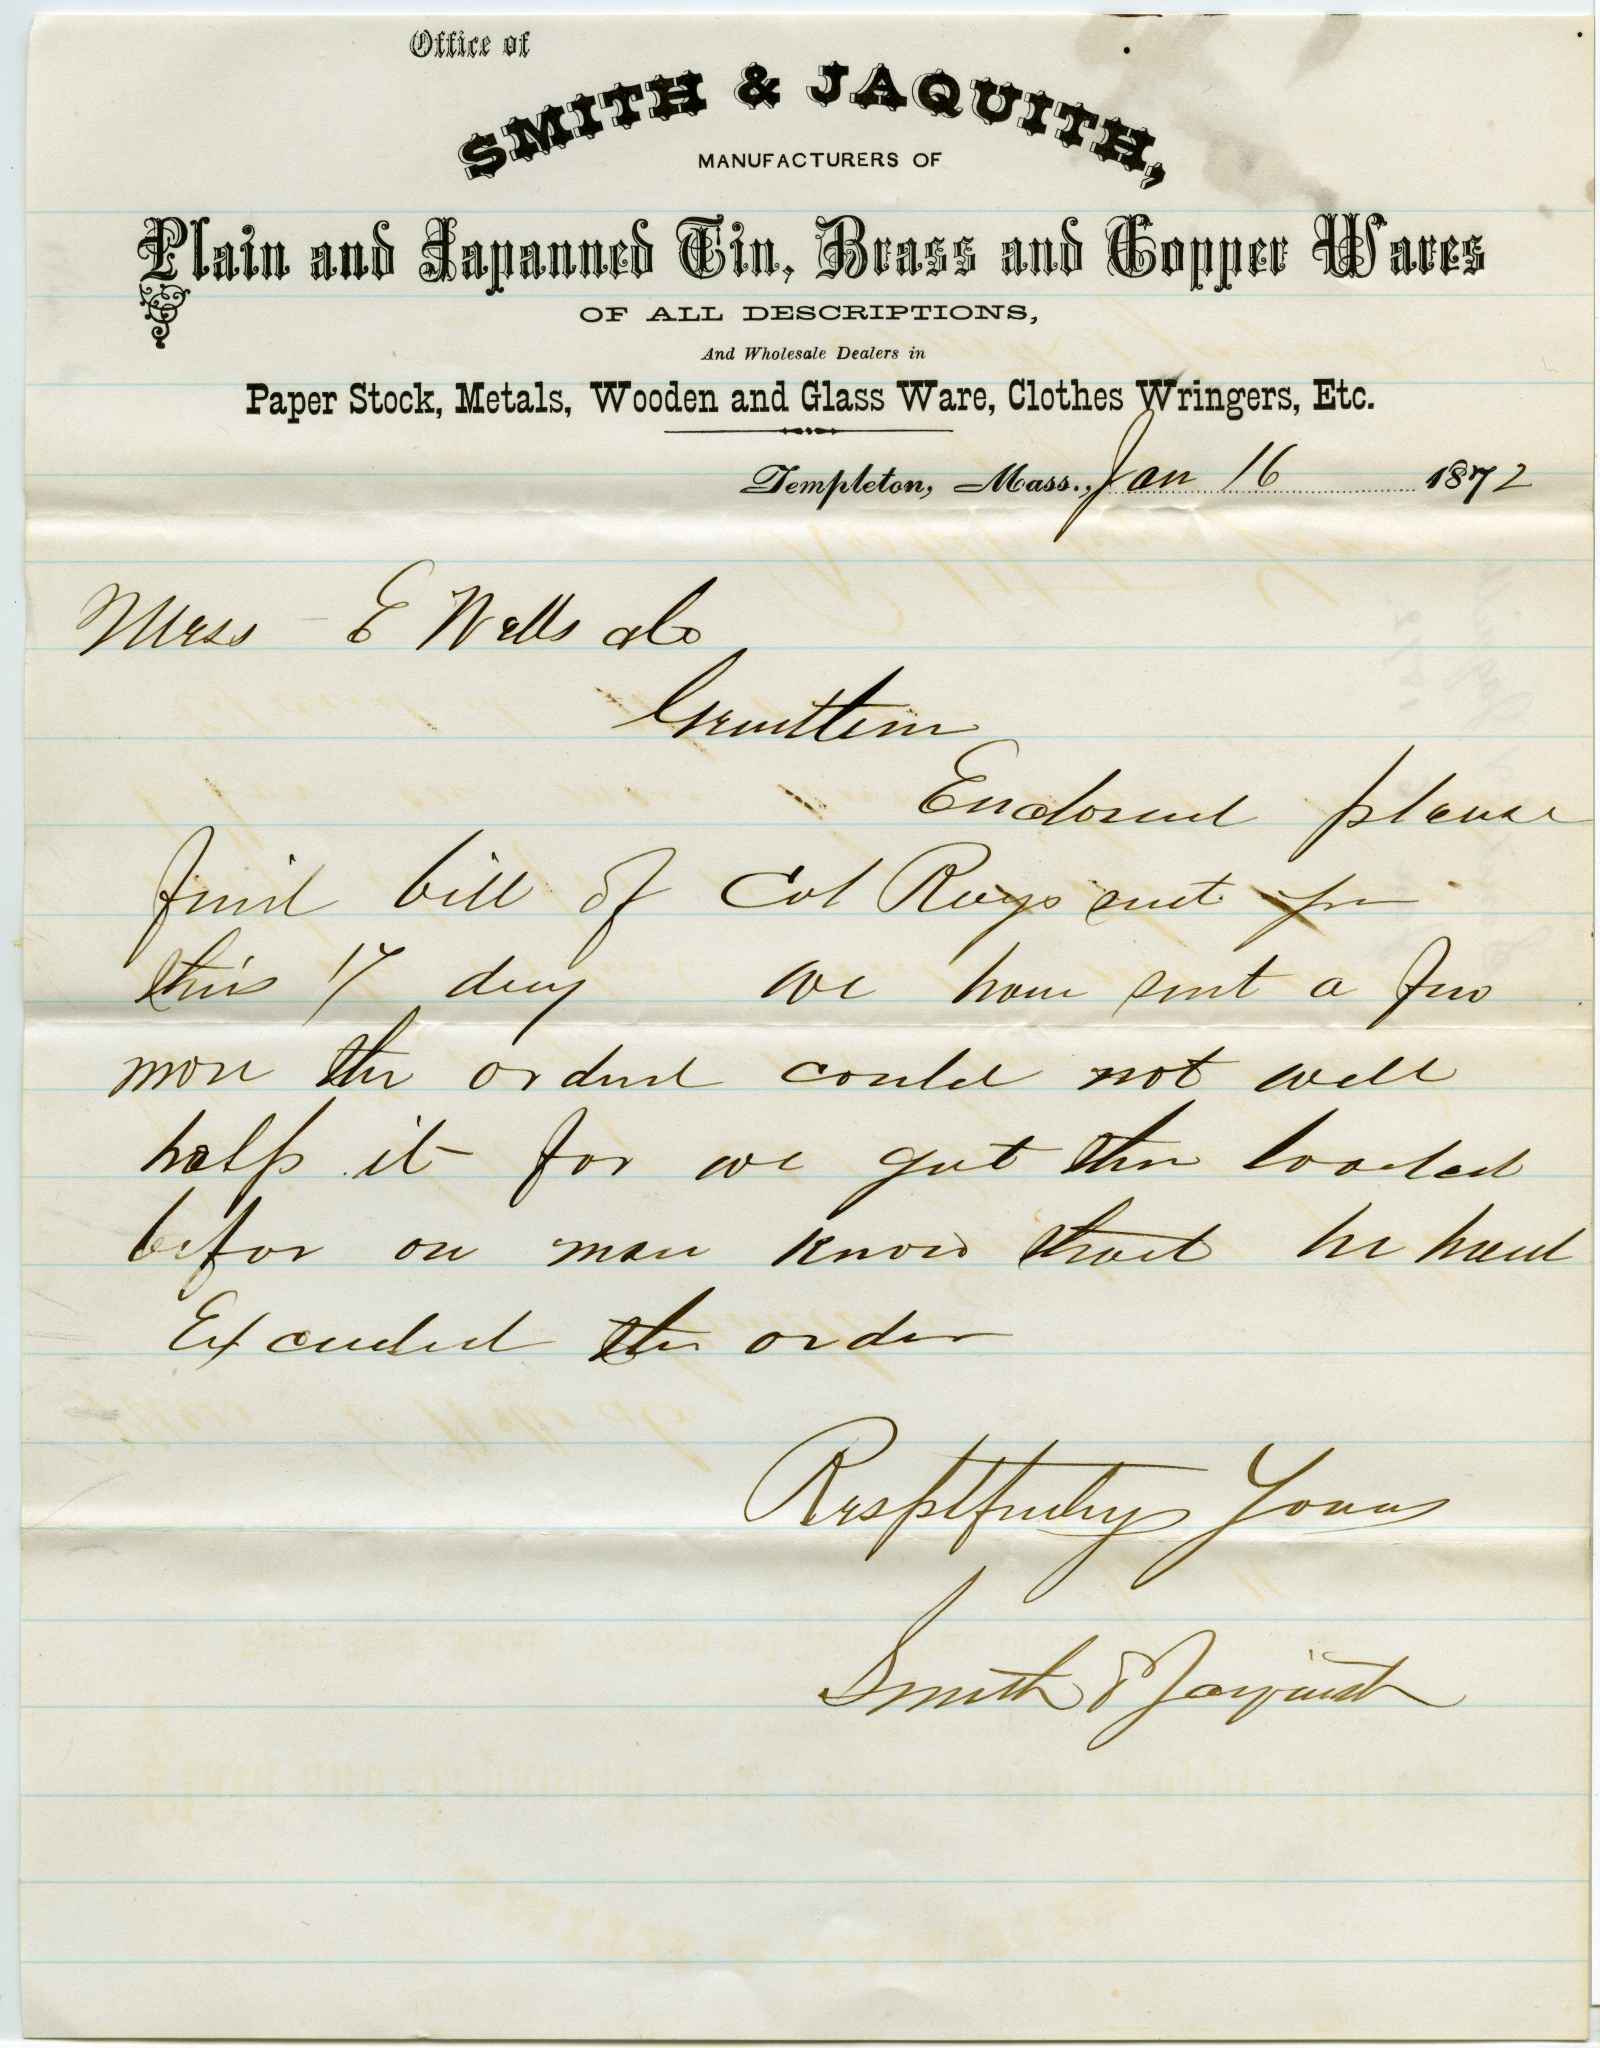 Office of
SMITH & JAQUITH,
MANUFACTURERS OF
Plain and Japanned Tin, Brass and Copper Wares
OF ALL DESCRIPTIONS,
And Wholesale Dealers in
Paper Stock, Metals, Wooden and Glass Ware, Clothes Wringers, Etc.
Templeton, Mass., Jan 16 1872
Mess E Wells & Co
Enclosed please
find bill of Col Rags sent
this 17 day we have sent a few
more the orderd could not well
help it for we got them loaded
befor ou man know that he had
Exceeded the order
Respltfuly Yours
Smith & Jaquith